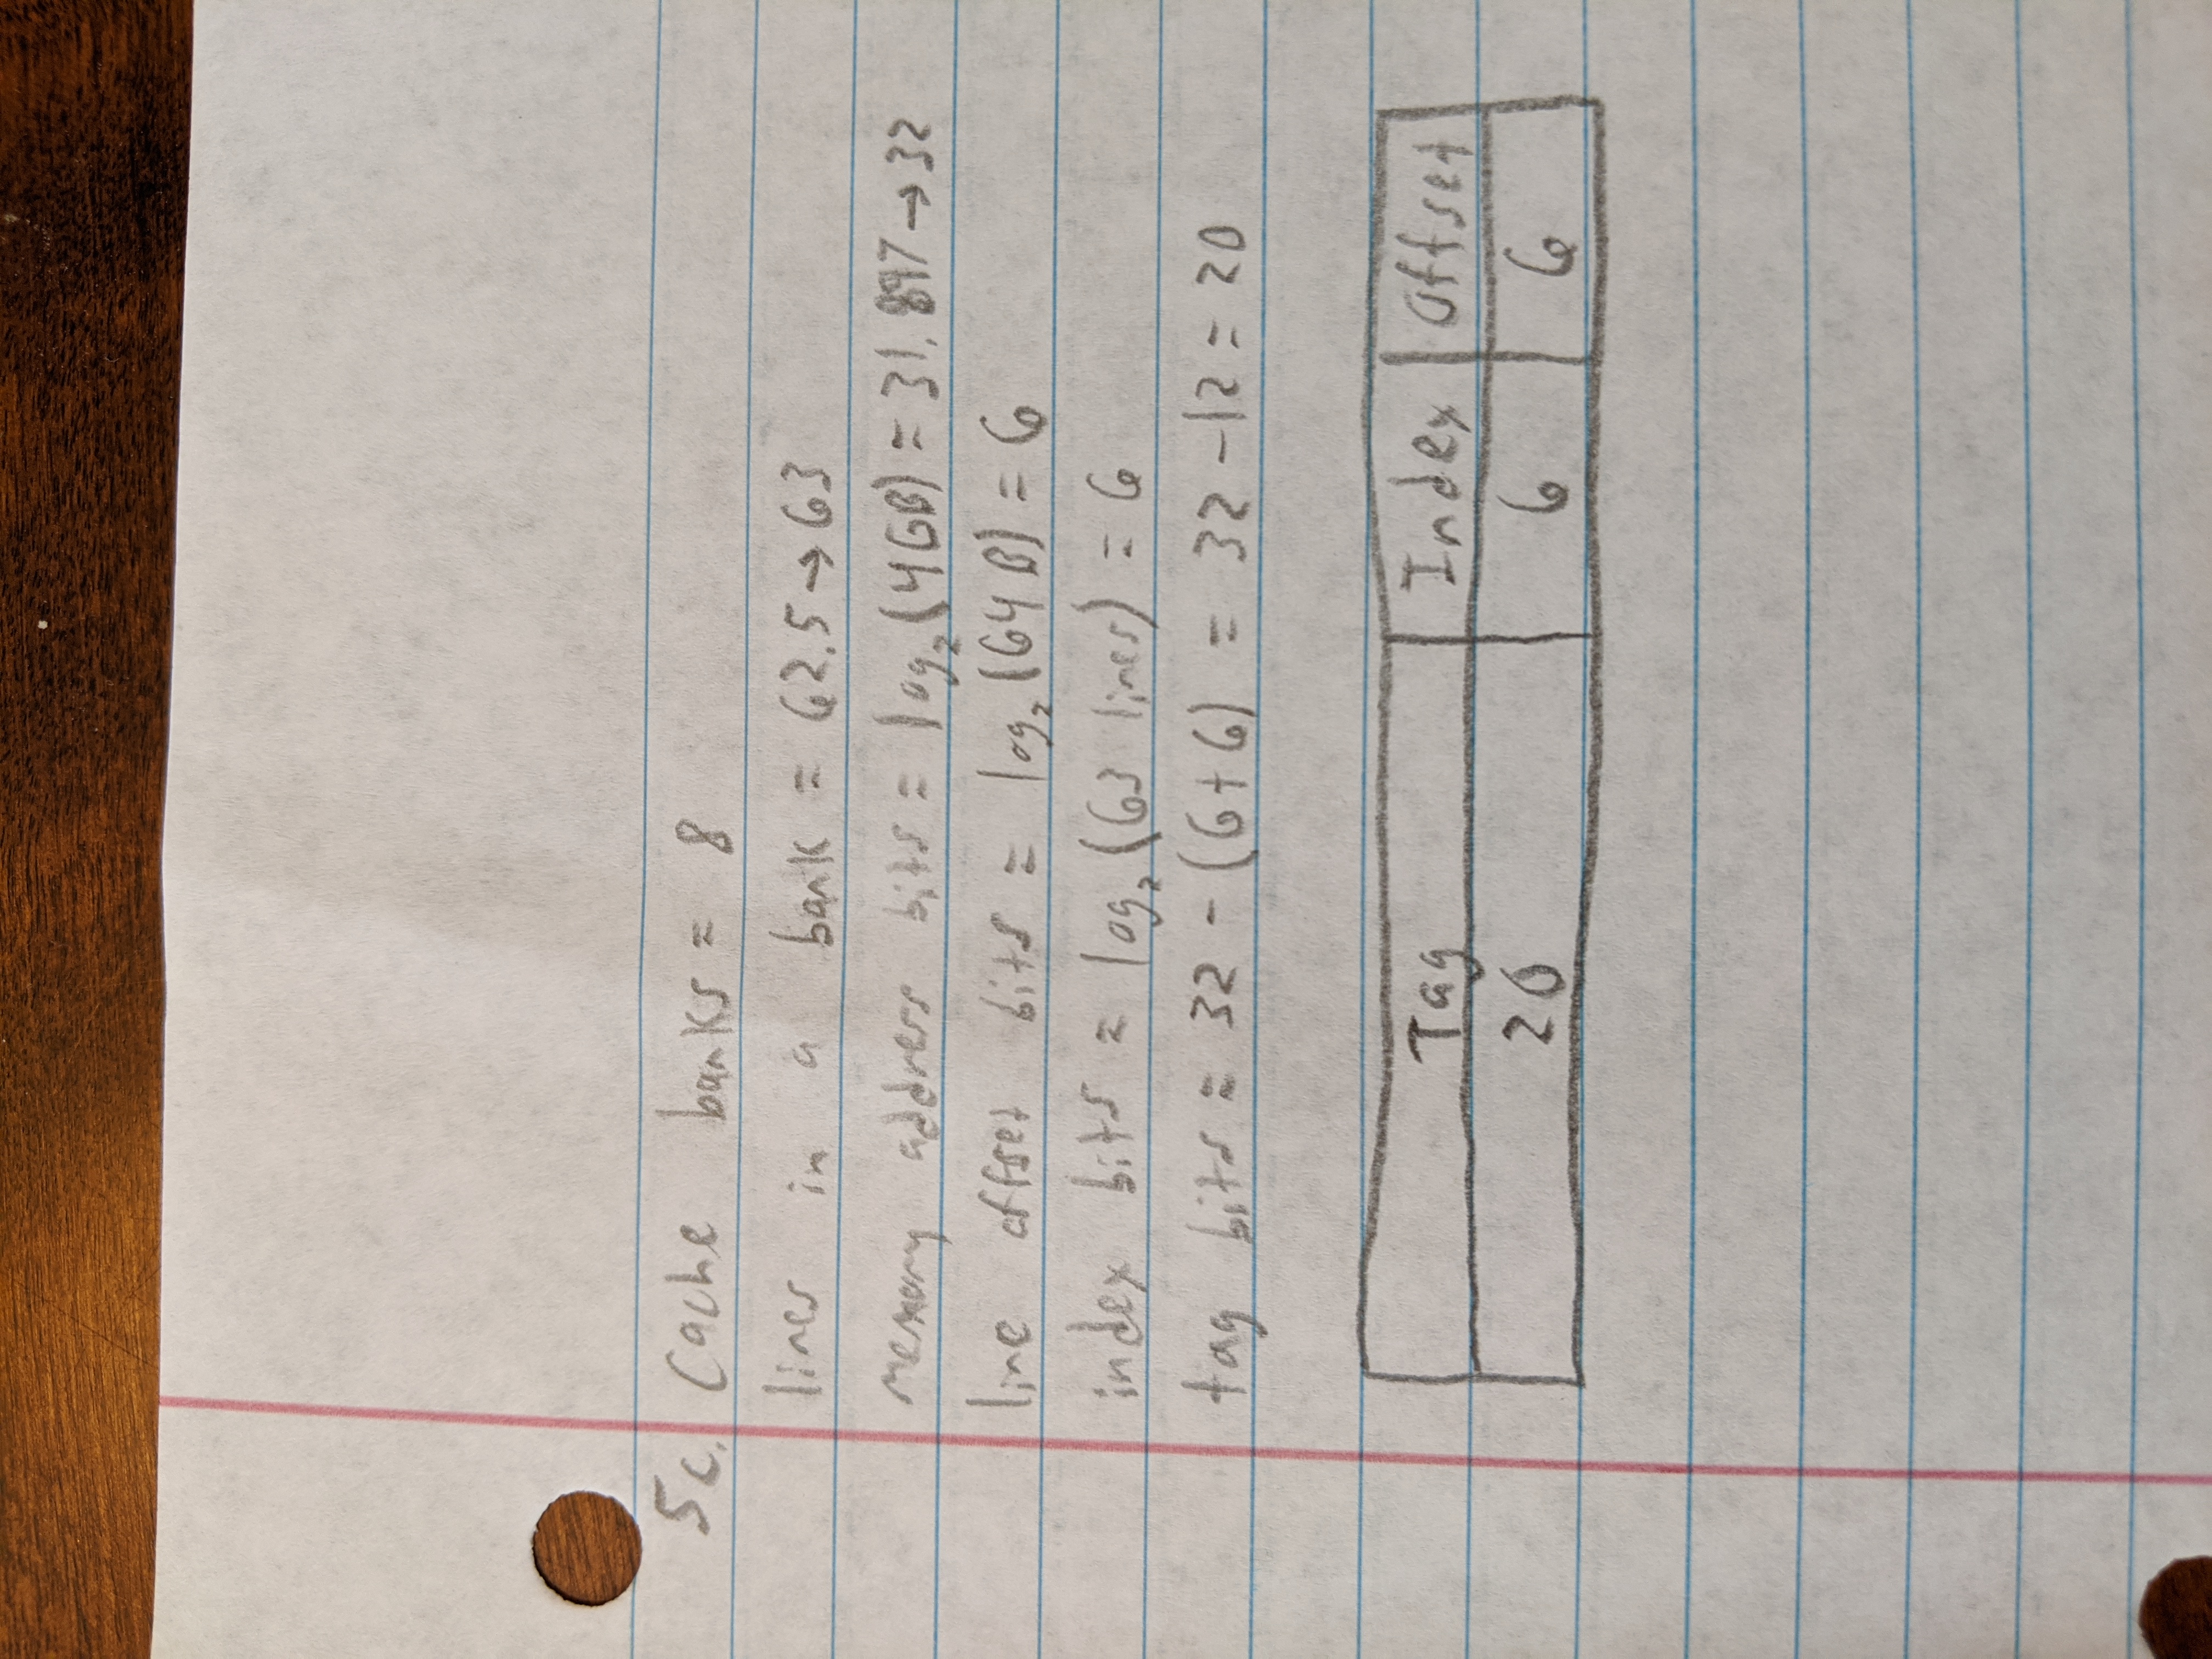 5c. Cache banks = 8
lines in a bank = 62.5 → 63
memory address bits = log₂(4GB) = 31.897 → 32
line offset bits = log₂(64B) = 6
index bits = log₂(63 lines) = 6
tag bits = 32 - (6+6) = 32 - 12 = 20
Tag Index Offset
20 6 6